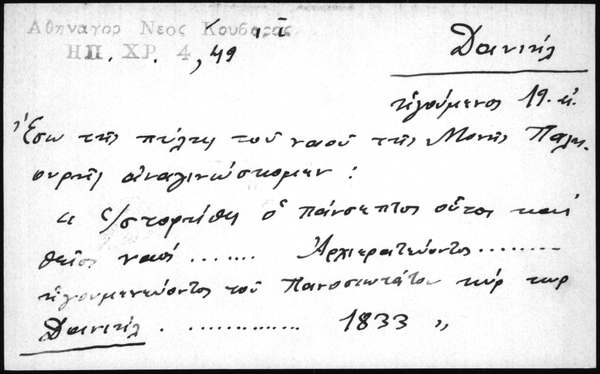 Αθηναγορ Νεος Κουβαρας
ΗΠ. ΧΡ. 4, 49
Δανιήλ
ἡγούμενος 19. αἰ.
Ἔσω τῆς πύλης τοῦ ναοῦ τῆς Μονῆς Παλη-
ουρῆς ἀναγινώσκομεν:
" Ἱστορήθη ὁ πάνσεπτος οὗτος καὶ
θεῖος ναός ....... Ἀρχιερατεύοντος ........
ἡγουμενεύοντος τοῦ Πανοσιωτάτου κὺρ κὺρ
Δανιήλ. ............. 1833 "